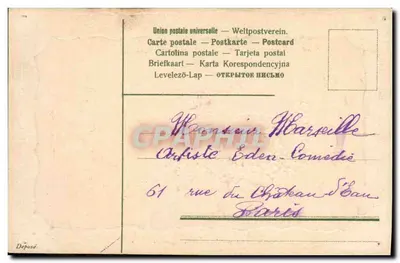 Union postale universelle – Weltpostverein.
Carte postale – Postkarte – Postcard
Cartolina postale – Tarjeta postal
Briefkaart – Karta Korespondencyjna
Levelező-Lap – ОТКРЫТОЕ ПИСЬМО
Monsieur Marseille
Artiste Eden-Comédie
61 rue du Château d'Eau
Paris
Déposé